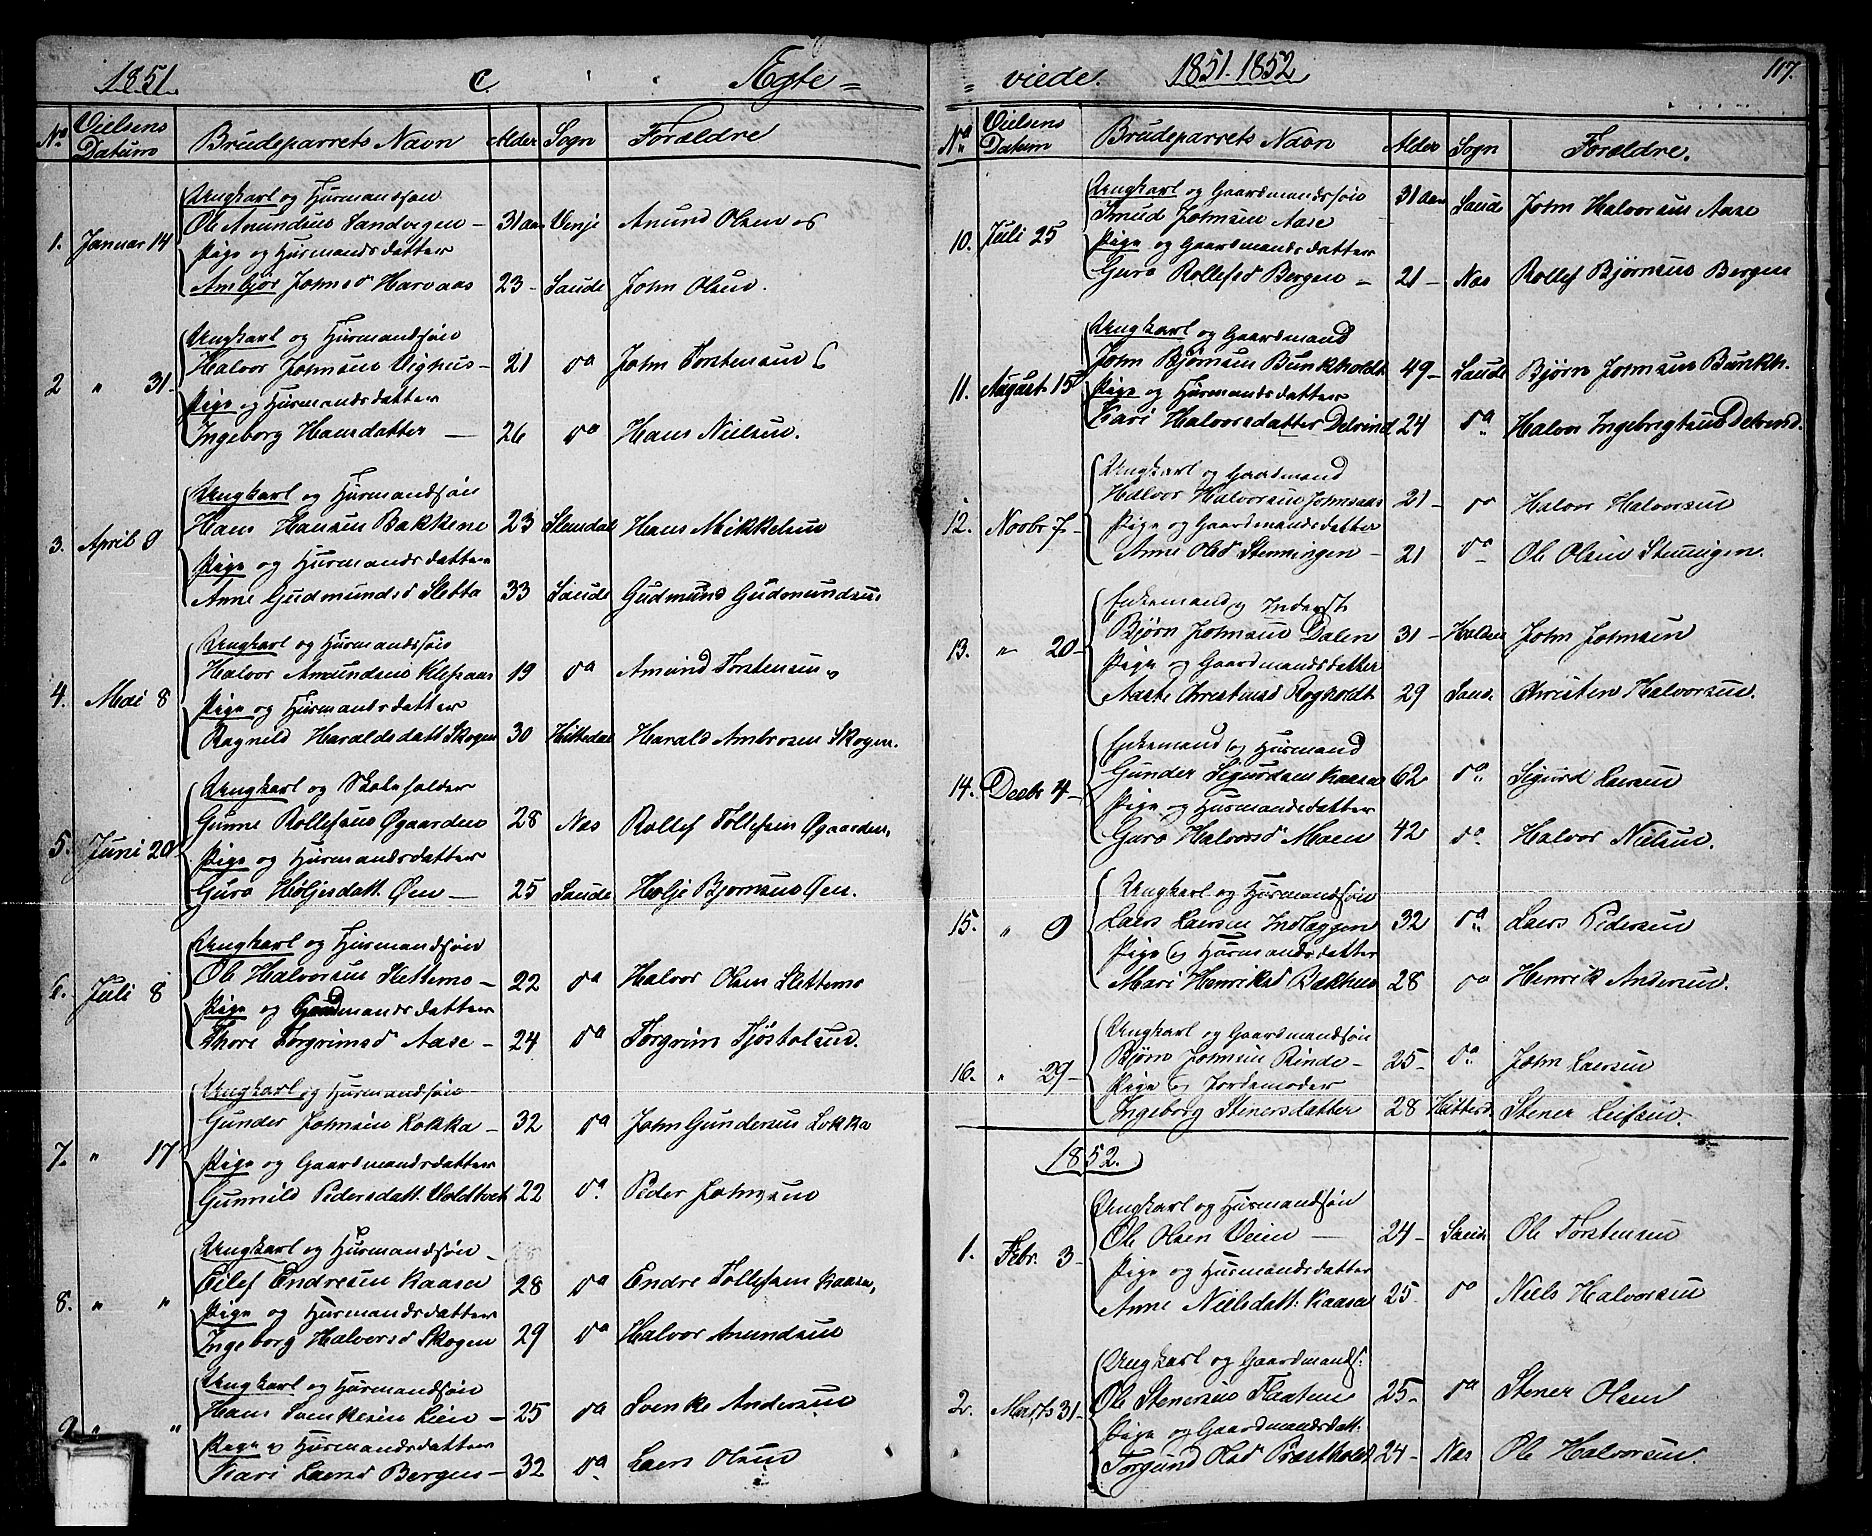 1851. C. Ægte =
No Vielsens Datum Brudeparrets Navn Alder Sogn Forældre
Ungkarl og Huusmandssøn
Ole Anundsen Sandvegen 31 aar Venje Anund Olsen
1. Januar 14
Pige og Huusmandsdatter
Ambjør Johnsd Harvaas 23 Saude John Olsen.
Ungkarl og Huusmandssøn
Halvor Johnsen Vighus 21 do John Torstensen
2 " 31
Pige og Huusmandsdatter
Ingeborg Hansdatter 26 do Hans Nielsen.
Ungkarl og Huusmandssøn
Hans Hansen Bakkene 23 Slemdal Hans Mikkelsen
3. April 9
Pige og Huusmandsdatter
Anne Gudmundsd Sletta 33 Saude Gudmund Gudmundsen
Ungkarl og Huusmandssøn
Halvor Amundsen Klepaas 19 do Amund Torstensen
4. Mai 8
Pige og Huusmandsdatter
Ragnild Haraldsdatt Skogen 30 Hitterdal Harald Ambrosen Skogen.
Ungkarl og Skoleholder
Gunne Rollefsen Øgaarden 28 Næs Rollef Tollefsen Øgaarden,
5. Juni 20
Pige og Huusmandsdatter
Guro Høljesdatt. Øen 25 Saude Hølje Bjørnsen Øen.
Ungkarl og Huusmandssøn
Ole Halvorsen Slettemo 22 do Halvor Olsen Slettemo
6. Juli 8
Pige og Gaardmandsdatter
Thore Torgrimsd Aase 24 do Torgrim Tjøstolsen.
Ungkarl og Huusmandssøn
Gunder Johnsen Lokka 32 do John Gundersen Lokka
7. " 17
Pige og Gaardmandsdatter
Gunnild Pedersdatt Voldtvet 22 do Peder Johnsen
Ungkarl og Huusmandssøn
Eilef Endresen Kaasa 28 do Endre Tollefsen Kaasa,
8. " "
Pige og Huusmandsdatter
Ingeborg Halvorsd Skogen 29 do Halvor Anundsen
Ungkarl og Huusmandssøn
Hans Svenkesen Lien 25 do Svenke Andersen
9 " "
Pige og Huusmandsdatter
Kari Laersd Bergen 32 do Laers Olsen
= viede. 1851. 1852 117.
No Vielsens Datum Brudeparrets Navn Alder Sogn Forældre.
Ungkarl og Gaardmandssøn
Knud Johnsen Aase 31 aar Saude John Halvorsen Aase
10. Juli 25
Pige og Gaardmandsdatter
Guro Rollefsd Bergen 21 Næs Rollef Bjørnsen Bergen
Ungkarl og Gaardmand
John Bjørnsen Bunkholdt 49 Saude Bjørn Johnsen Bunkh.
11. August 15
Pige og Huusmandsdatter
Kari Halvorsdatter Delvind 24 do Halvor Ingebrigtsen
Ungkarl og Gaardmand
Halvor Halvorsen Johnsaas 21 do Halvor Halvorsen
12. Novbr 7
Pige og Gaardmandsdatter
Anne Olsd Stenningen 21 do Ole Olsen Stenningen.
Enkemand og Inderst
Bjørn Johnsen Dalen 31 Holden John Johnsen
13. " 20
Pige og Gaardmandsdatter
Aaste Christensd Rogholdt 29 Saud. Christen Halvorsen.
Enkemand og Huusmand
Gunder Sigurdsen Kaasa 62 do Sigurd Laersen
14. Decbr 4
Pige og Huusmandsdatter
Guro Halvorsd Moen 42 do Halvor Nielsen.
Ungkarl og Huusmandssøn
Laers Laersen Indlaggen 32 do Laers Pedersen
15. " 9
Pige og Huusmandsdatter
Mari Henriksd Bakhus 28 do Henrik Andersen.
Ungkarl og Gaardmandssøn
Bjørn Johnsen Rinde 25 do John Laersen
16. " 29
Pige og Jordemoder
Ingeborg Stenersdatter 28 Hitterd. Stener Leifsen.
1852.
Ungkarl og Huusmandssøn
Ole Olsen Veien 24 Saude Ole Torstensen
1. Febr. 3
Pige og Huusmandsdatter
Anne Nielsdatt: Kaasa 25 do Niels Halvorsen
Ungkarl og Gaardmands:
Ole Stenersen Flaaten 25 do Stener Olsen
2. Marts 31
Pige og Gaardmandsdatt:
Torgund Olsd Præstholdt 24 Næs Ole Halvorsen.